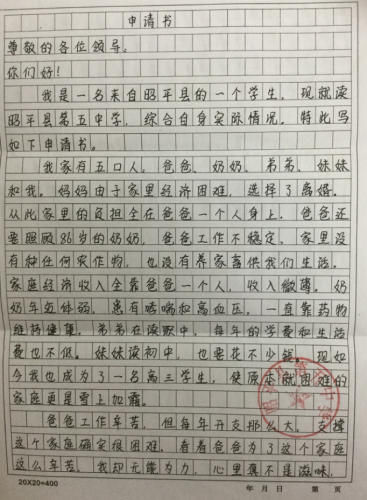 申请书
尊敬的各位领导。
你们好!
我是一名来自昭平县的一个学生,现就读
昭平县第五中学,综合自身实际情况。特此写
如下申请书。
我家有五口人,爸爸、奶奶、弟弟、妹妹
和我。妈妈由于家里经济困难,选择了离婚,
从此家里的负担全在爸爸一个人身上,爸爸还
要照顾86岁的奶奶,爸爸工作不稳定,家里没
有种任何农作物,也没有养家畜供我们生活。
家庭经济收入全靠爸爸一个人,收入微薄。奶
奶年迈体弱,患有哮喘和高血压,一直靠药物
维持健康,弟弟在读职中,每年的学费和生活
费也不低。妹妹读初中,也要花不少钱,现如
今我也成为了一名高三学生,使原本就困难的
家庭更是雪上加霜。
爸爸工作辛苦,但每年开支那么大,支撑
这个家庭确实很困难,看着爸爸为了这个家庭
这么辛苦,我却无能为力,心里真不是滋味,
20X20=400
年 月 日 第 页